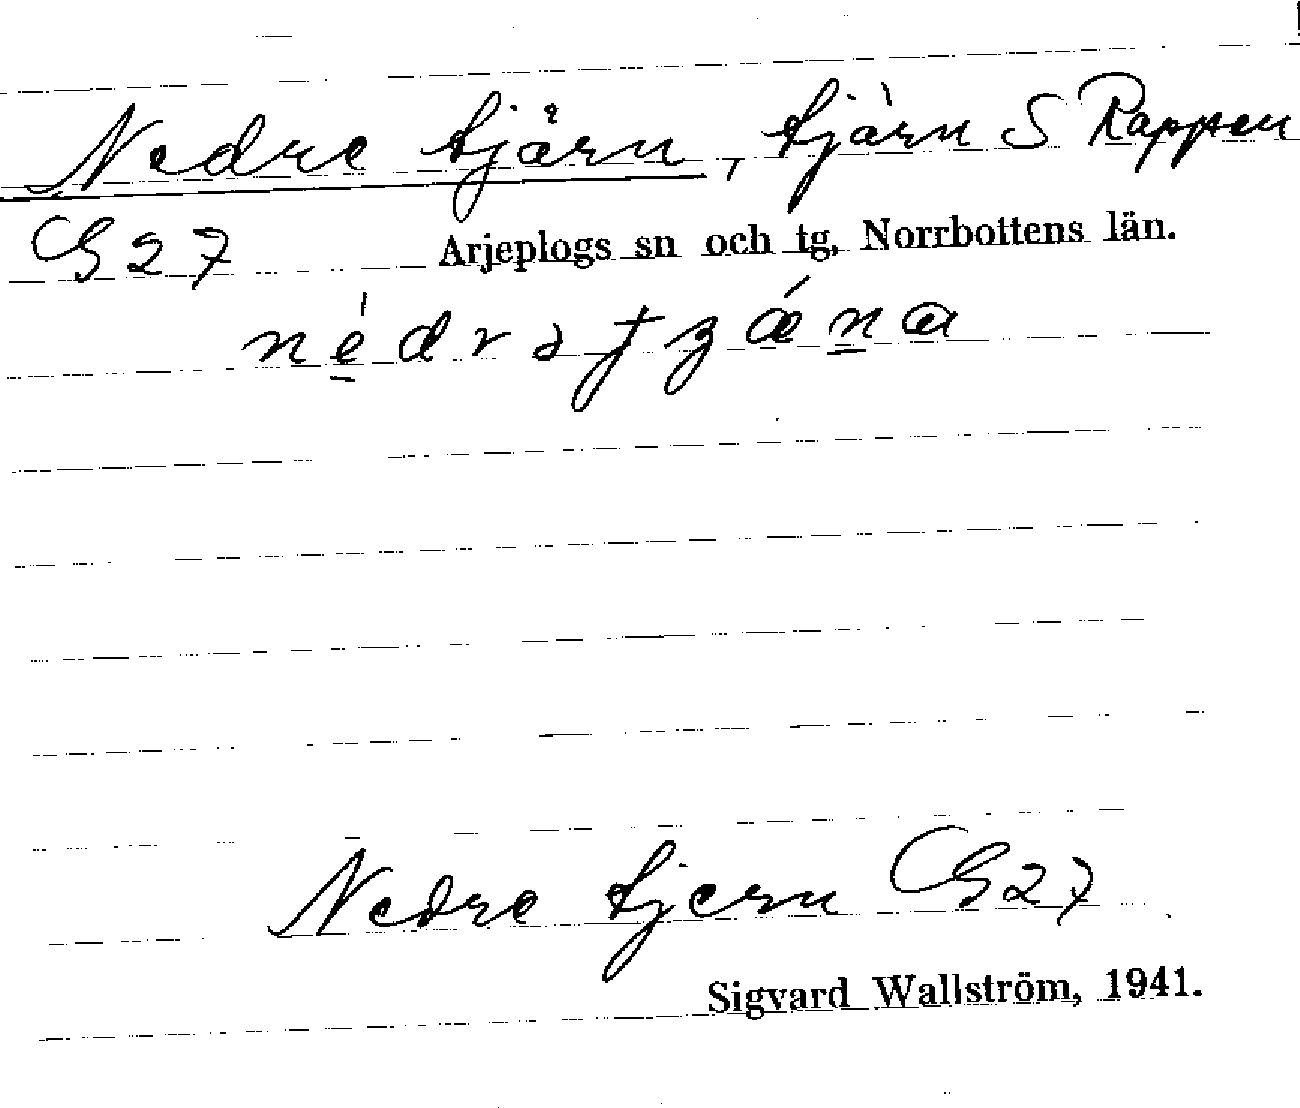 Nedre tjärn, tjärn S Rappen
G27 Arjeplogs sn och tg, Norrbottens län.
Nedre tjern G27
Sigvard Wallström, 1941.